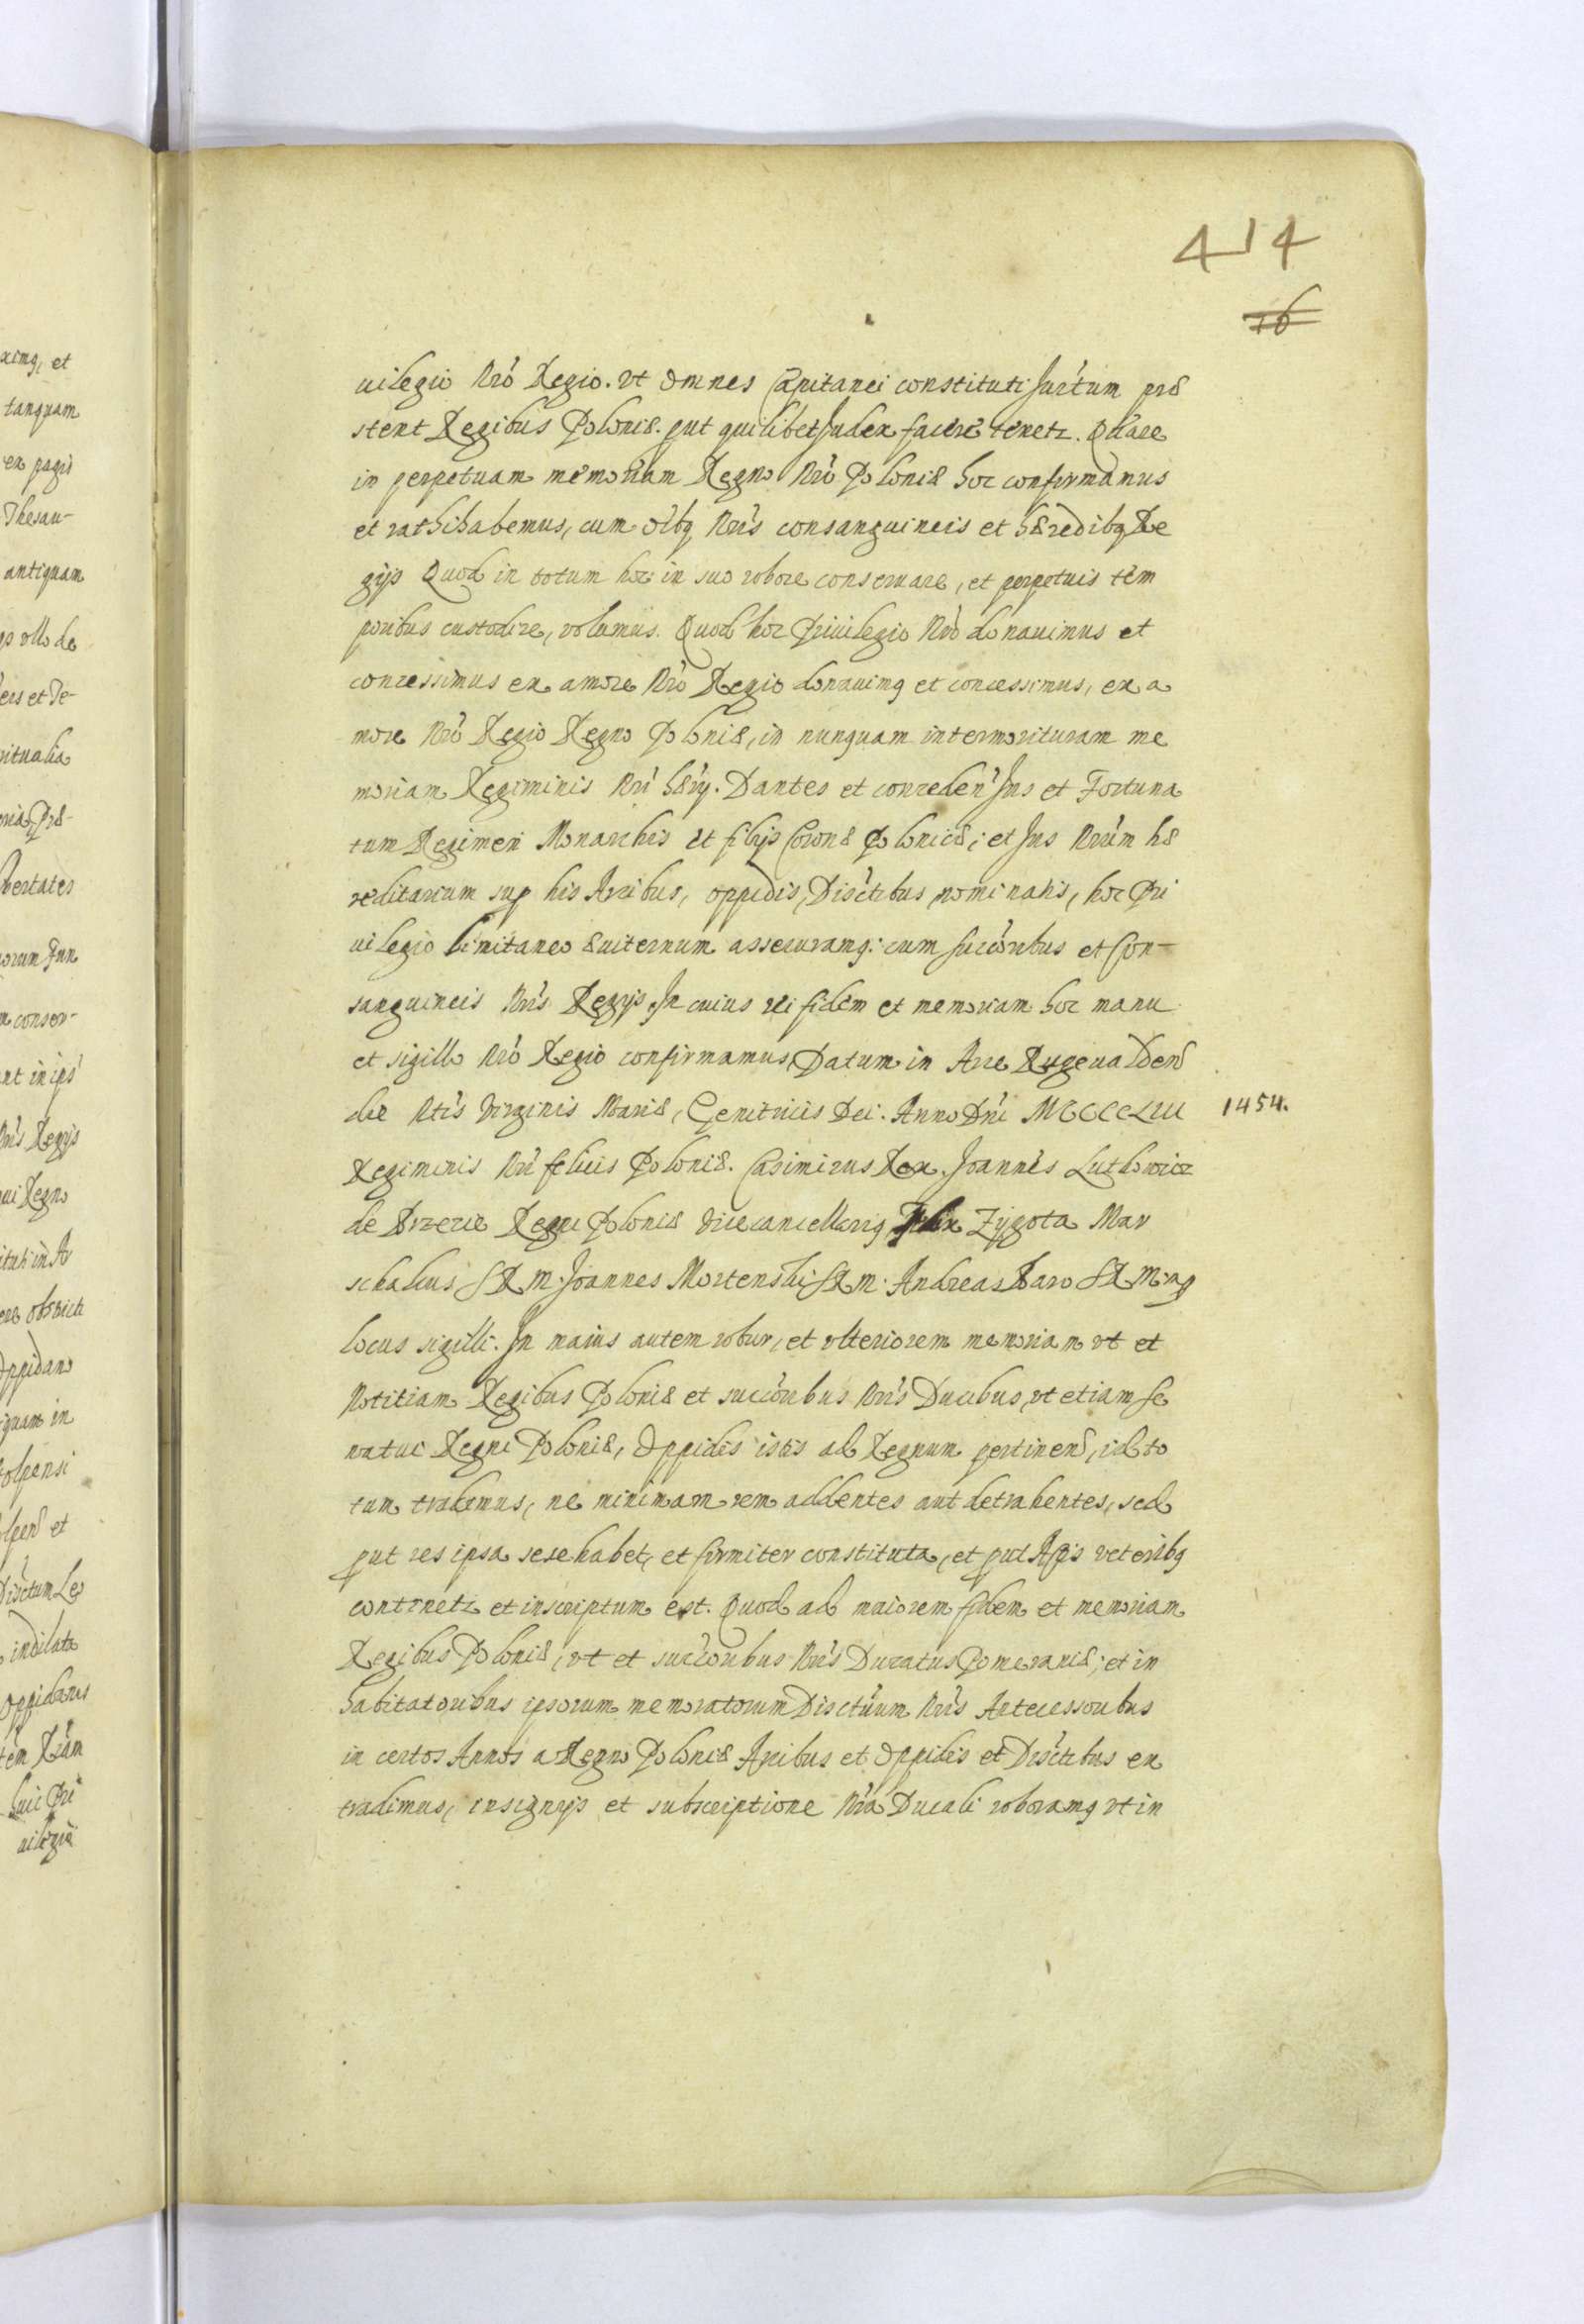 414
26
uilegio Nrõ Regio. vt Omnes Capitanei constituti Jurtum præ
stent Regibus Poloniæ. put quilibet Judex facere tenetr. Quare
in perpetuam memoriam Regno Nrõ Poloniæ hoc confirmamus
et rathihabemus, cum oibq Nris consanguineis et hæredibq Re
gijs Quod in totum hoc in suo robore conseruare, et perpetuis tem
poribus custodire, volumus. Quod hoc Priuilegio Nrõ donauimus et
concessimus ex amore Nrõ Regio donauimq et concessimus, ex a
more Nrõ Regio Regno Poloniæ, in nunquam intermorituram me
moriam Regiminis Nri hæry. Dantes et conceden Jus et Fortuna
tum Regimen Monarchis et filijs Coronæ Polonicæ; et Jus Nrum hæ
reditarium sup his Arcibus, oppidis, Disctibus nominatis, hoc Pri
uilegio limitaneo æuiternum assecuramq: cum succoribus et Con-
sanguineis Nris Regijs. In cuius rei fidem et memoriam hoc manu
et sigillo Nrõ Regio confirmamus, Datum in Arce Rugeualden
die Ntis Virginis Mariæ, Genitricis Dei. Anno Dni MCCCCLIII
1454.
Regiminis Nri felicis Poloniæ. Casimirus Rex. Joannes Lutkowicz
de Brzezie Regni Poloniæ Vicecancellariq Zygota Mar
schalcus SRM. Joannes Mortenski SRM. Andreas Baro SRM.
locus sigilli. In maius autem robur, et vlteriorem memoriam vt et
Notitiam Regibus Poloniæ et succoribus Nris Ducibus, vt etiam Se
natui Regni Poloniæ, Oppidis istis ad Regnum pertinen, id to
tum tradimus, ne minimam rem addentes aut detrahentes, sed
put res ipsa sese habet, et firmiter constituta, et put Apis veteribq
continetr et inscriptum est. Quod ad maiorem fidem et memoriam
Regibus Poloniæ, vt et succoribus Nris Ducatus Pomeraniæ; et in
habitatoribus ipsorum memoratorum Disctuum Nris Antecessoribus
in certos Annos a Regno Poloniæ Arcibus et Oppidis et Disctibus ex
tradimus, insignijs et subscriptione Nra Ducali roboramq vt in